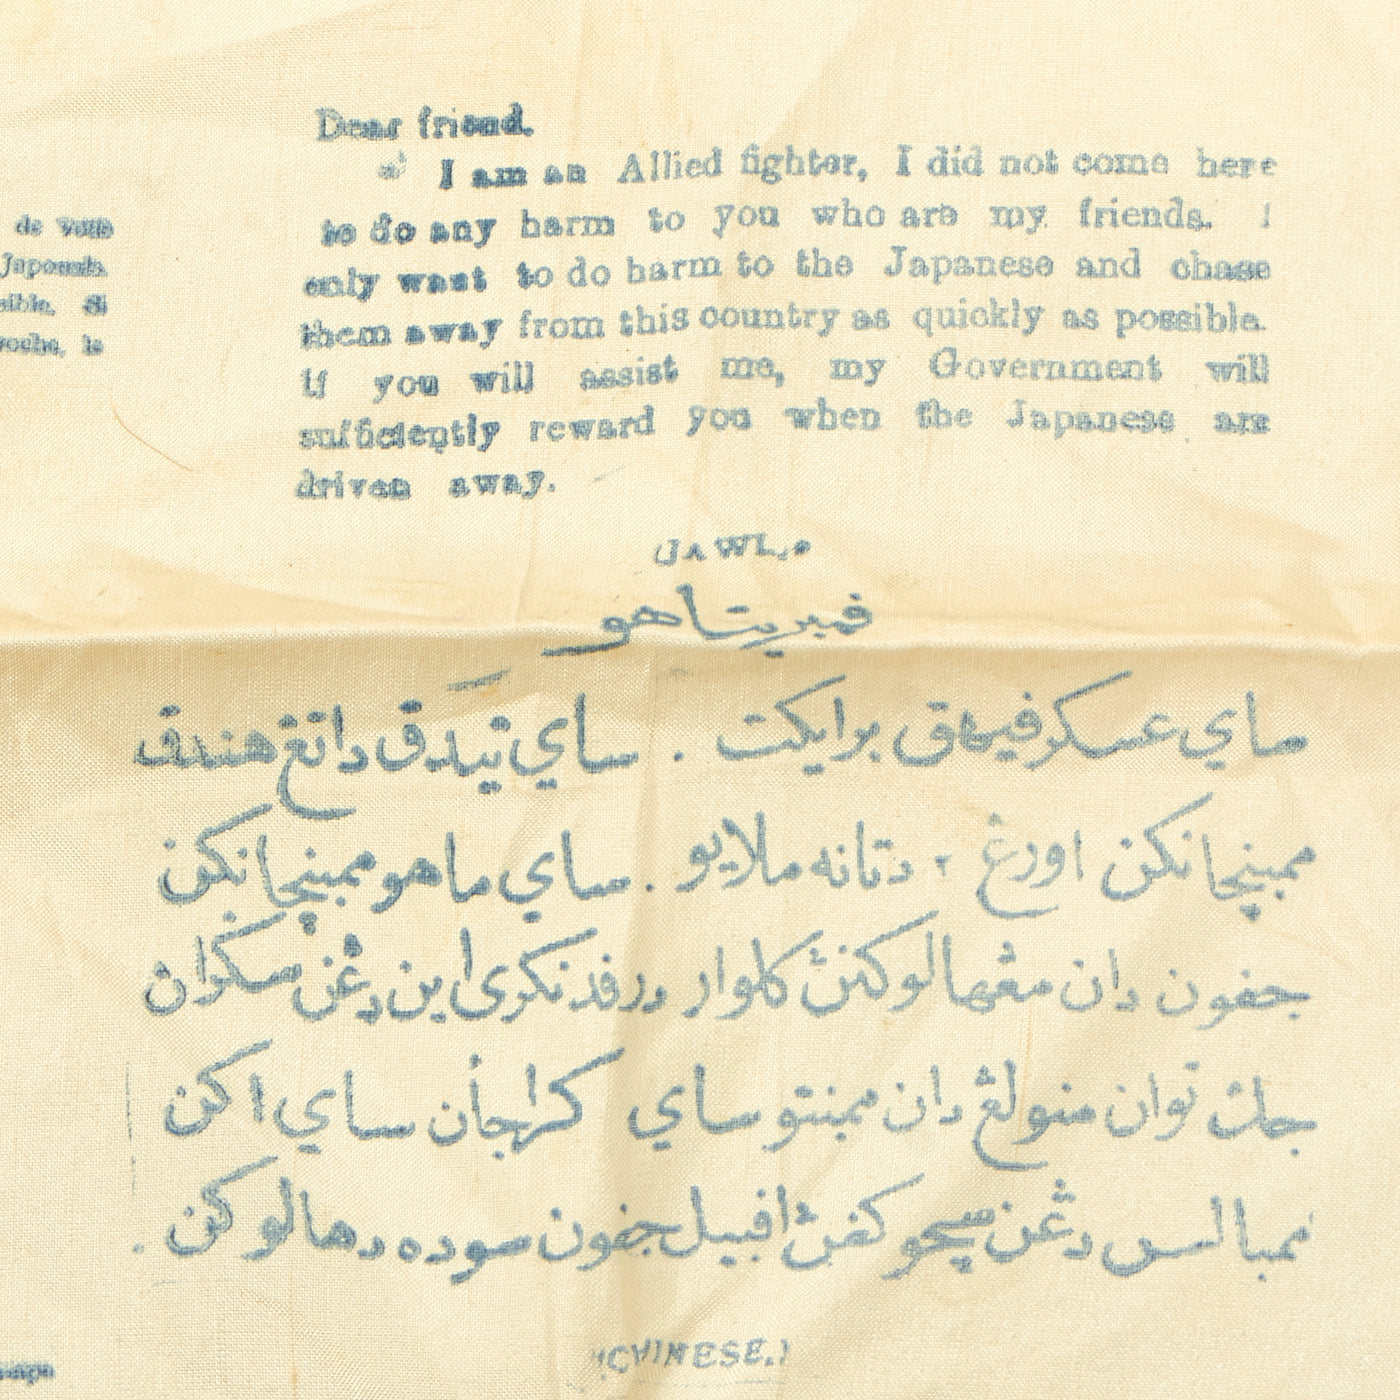 Dear friend.
I am an Allied fighter, I did not come here
to do any harm to you who are my friends. I
only want to do harm to the Japanese and chase
them away from this country as quickly as possible.
If you will assist me, my Government will
sufficiently reward you when the Japanese are
driven away.
de vous
Japonais.
sible. Si
roche, le
(JAWI.)
فمبريتاهو
ساي عسكر فيهاق برايكت . ساي تيدق داتڠ هندق
ممبنچانكن اورڠ ٢ دتانه ملايو . ساي ماهو ممبنچانكن
جفون دان مڠهالوكنڽ كلوار درفد نكري اين دڠن سكران
جك توان منولڠ دان ممبنتو ساي كراجأن ساي اكن
ممبالس دڠن سچوكفڽ افبيل جفون سوده دهالوكن .
(CHINESE.)